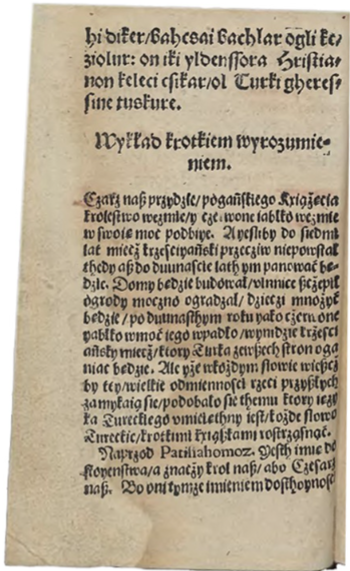 hi diker/bahcsai bachlar ogli ke/
ziolur: on iki yldenssora Hristia/
non keleci csikar/ol Turki gheres/
sine tuskure.
Wykład krotkiem wyrozumie-
niem.
Czarz naß przydzie/pogańskiego Książęcia
krolestwo weźmie/y czerwone iabłko weźmie
w swoię moc podbiye. A yesliby do siedmi
lat miecz krzesciyański przeciw niepowstał
thedy aż do dwunascie lath ym panować bę-
dzie. Domy bedzie budował/winnice sczepił
ogrody moczno ogradzał/dzieczi mnożył
bedzie/po dwunasthym roku yako czerwone
yabłko wmoc iego wpadło/wynidzie krzesci
ański miecz/ktory Turka zewszech stron oga
niac bedzie. Ale yże wkożdym słowie wiescz
by tey/wielkie odmiennosci rzeci przyßłych
zamykaią sie/podobało sie themu ktory ięzy
ka Tureckiego vmieiethny iest/kożde słowo
Tureckie/krotkimi książkami rostrząsnąć.
Naprzod Patißahomoz. Yesth imię do
stoyenstwa/a znaczy krol naß/abo Czesarz
naß. Bo oni tymże imieniem dosthoynosc